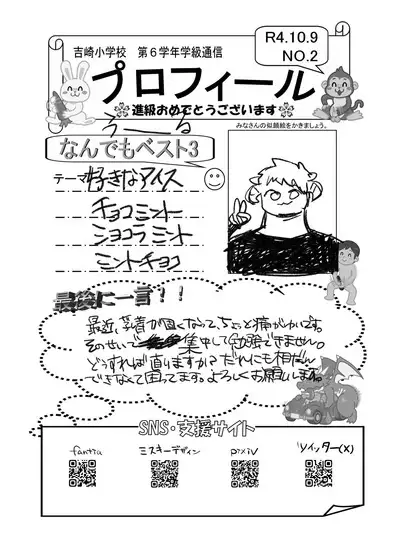 吉崎小学校 第6学年学級通信
R4.10.9
NO.2
プロフィール
進級おめでとうございます
うーる
みなさんの似顔絵をかきましょう。
なんでもベスト3
テーマ 好きなアイス
チョコミント
ショコラミント
ミントチョコ
最後に一言！！
最近、乳首が固くなって、ちょっと痛がゆいです。
そのせいで集中して勉強できません。
どうすれば直りますか？だれにも相だん
できなくて困ってます。よろしくお願いします。
SNS・支援サイト
fantia ミスキーデザイン pixiv ツイッター(X)